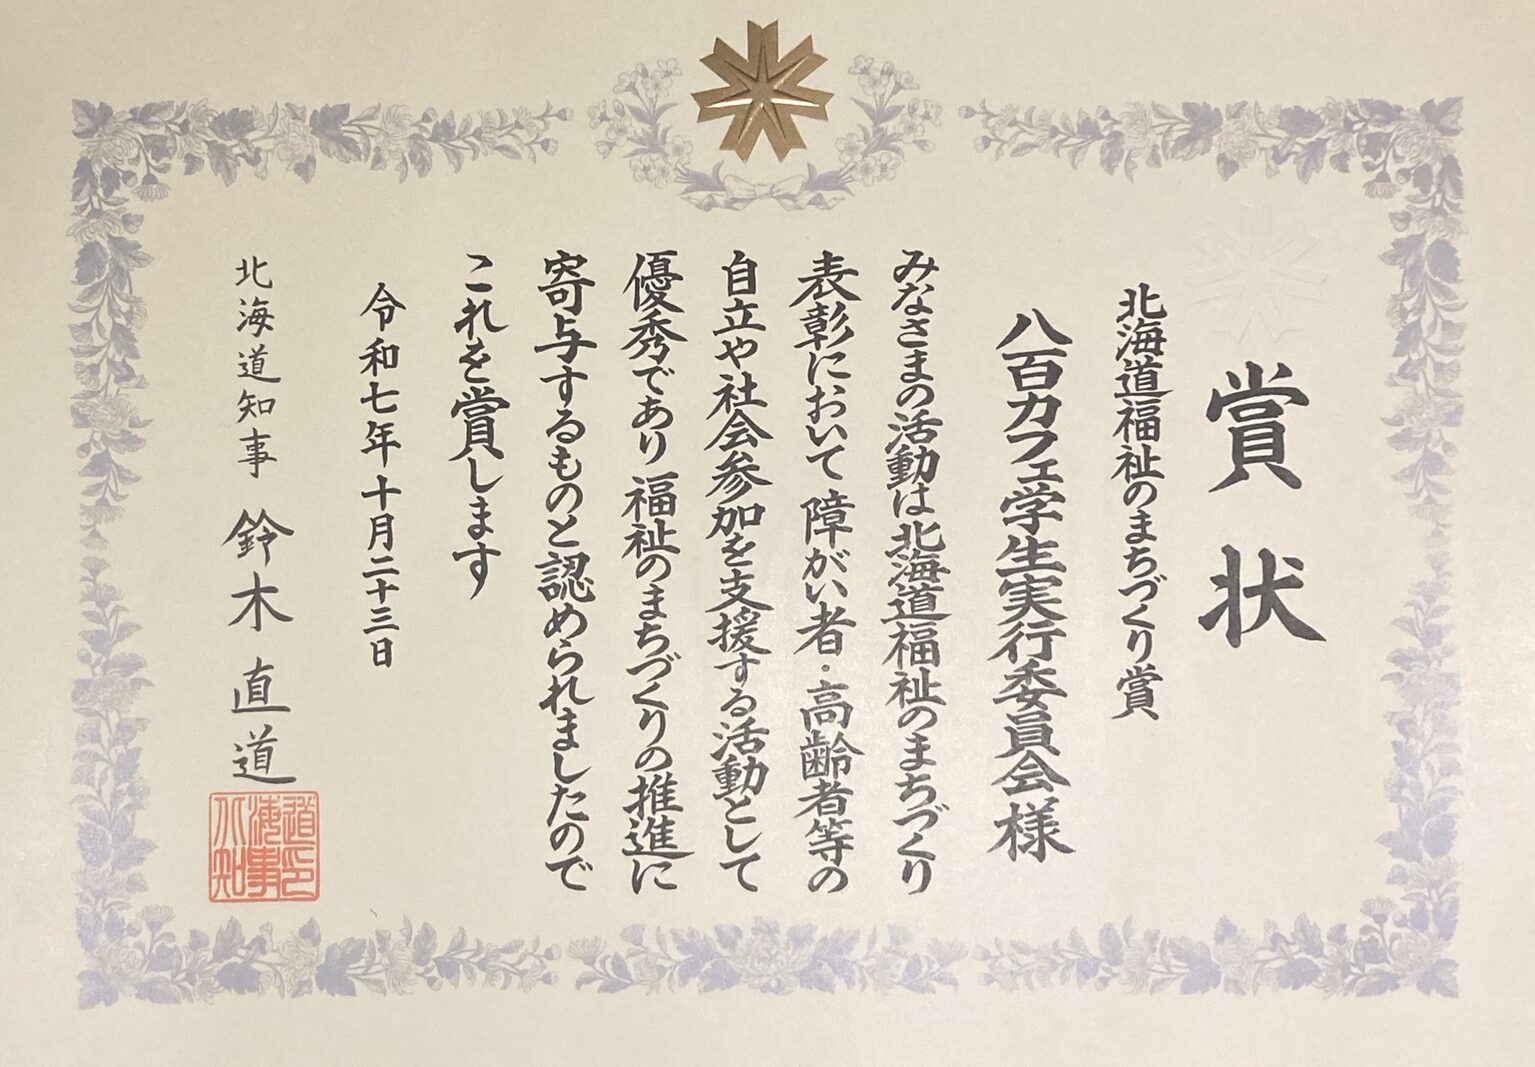 賞状
北海道福祉のまちづくり賞
八百カフェ学生実行委員会様
みなさまの活動は北海道福祉のまちづくり
表彰において障がい者・高齢者等の
自立や社会参加を支援する活動として
優秀であり福祉のまちづくりの推進に
寄与するものと認められましたので
これを賞します
令和七年十月二十三日
北海道知事 鈴木直道
道印
海事
北知